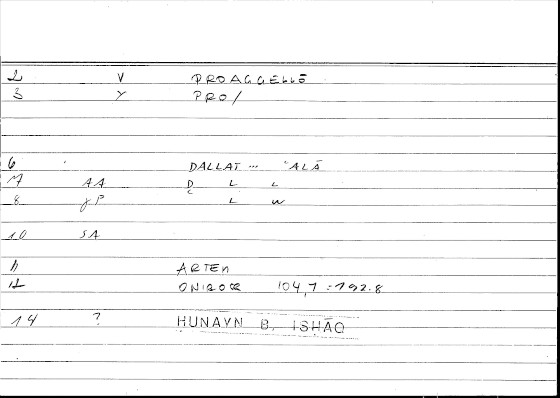 2 V PROAGGELLŌ
3 Y PRO/
6 DALLAT ... ʿALĀ
7 AA D L L
8 gP Ḍ L W
10 SA
11 ARTEM
12 ONIROCR 104,7 = 192.8
14 ? HUNAYN B. ISHĀQ